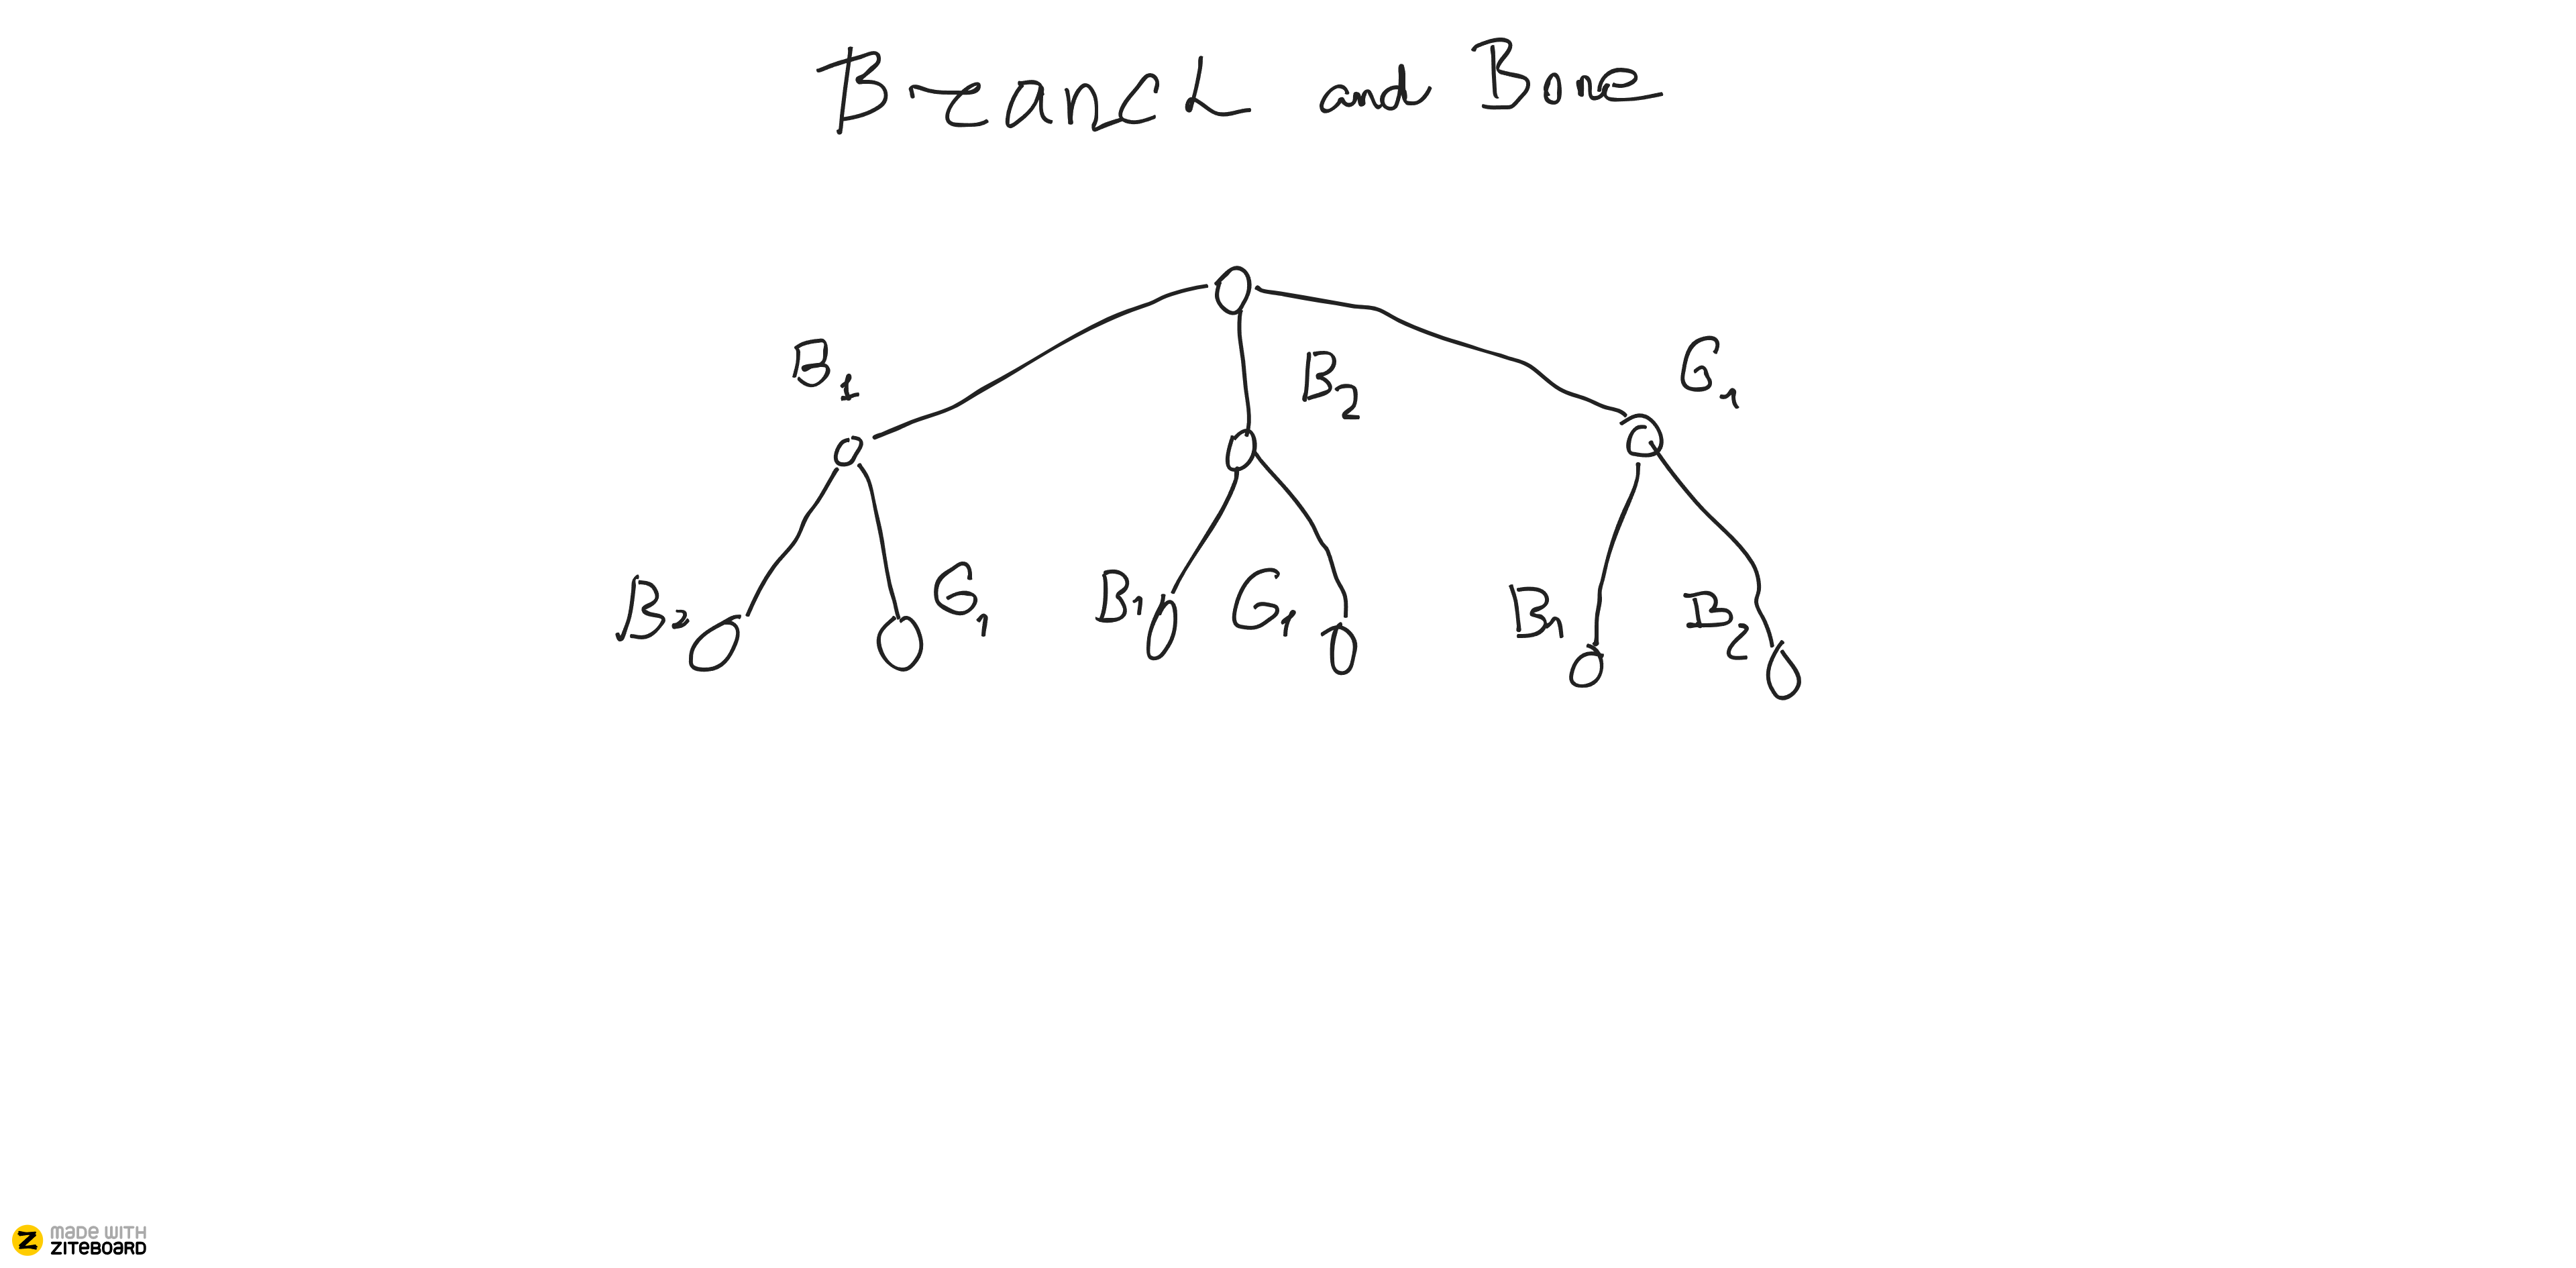 Branch and Bone
B1 B2 G1
B2 G1 B1 G1 B1 B2
MADE WITH
ZITEBOARD